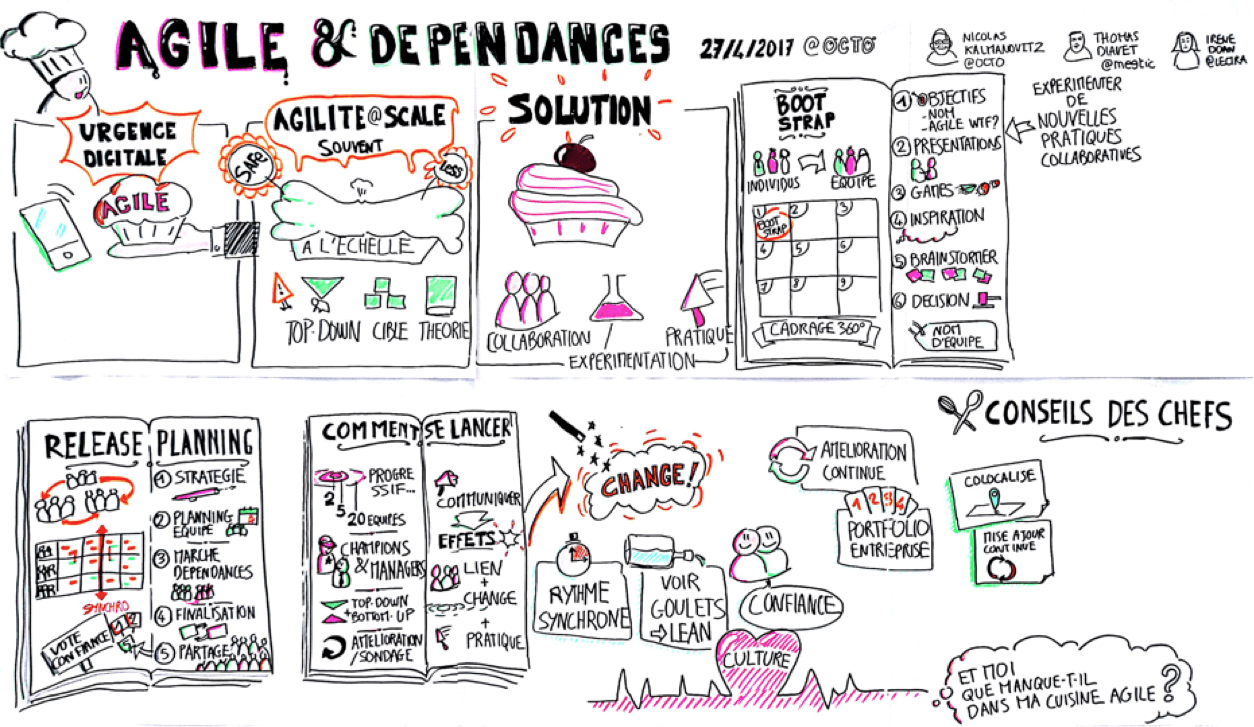 AGILE & DEPENDANCES
27/4/2017 @OCTO
NICOLAS
KALMANOVITZ
@OCTO
THOMAS
DIAVET
@meetic
IRENE
DOAN
@LECTRA
URGENCE
DIGITALE
AGILE
AGILITE@SCALE
SOUVENT
SAFe
LeSS
A L'ECHELLE
TOP-DOWN
CIBLE
THEORIE
SOLUTION
COLLABORATION
EXPERIMENTATION
PRATIQUE
BOOT
STRAP
INDIVIDUS
EQUIPE
1
2
3
BOOT
STRAP
4
5
6
7
8
9
CADRAGE 360°
1 OBJECTIFS
-NOM
-AGILE WTF?
2 PRESENTATIONS
3 GAMES
4 INSPIRATION
5 BRAINSTORMER
6 DECISION
NOM
D'EQUIPE
EXPERIMENTER
DE
NOUVELLES
PRATIQUES
COLLABORATIVES
RELEASE PLANNING
SYNCHRO
VOTE
CONFIANCE
1 STRATEGIE
2 PLANNING
EQUIPE
3 MARCHE
DEPENDANCES
4 FINALISATION
5 PARTAGE
COMMENT SE LANCER
PROGRE
SSIF...
2
5
20 EQUIPES
CHAMPIONS
& MANAGERS
TOP-DOWN
+BOTTOM-UP
AMELIORATION
/SONDAGE
COMMUNIQUER
EFFETS
LIEN
+
CHANGE
+
PRATIQUE
CHANGE!
RYTHME
SYNCHRONE
VOIR
GOULETS
⇨LEAN
CONFIANCE
CULTURE
AMELIORATION
CONTINUE
1 2 3 4
PORTFOLIO
ENTREPRISE
CONSEILS DES CHEFS
COLOCALISE
MISE A JOUR
CONTINUE
ET MOI
QUE MANQUE-T-IL
DANS MA CUISINE AGILE ?